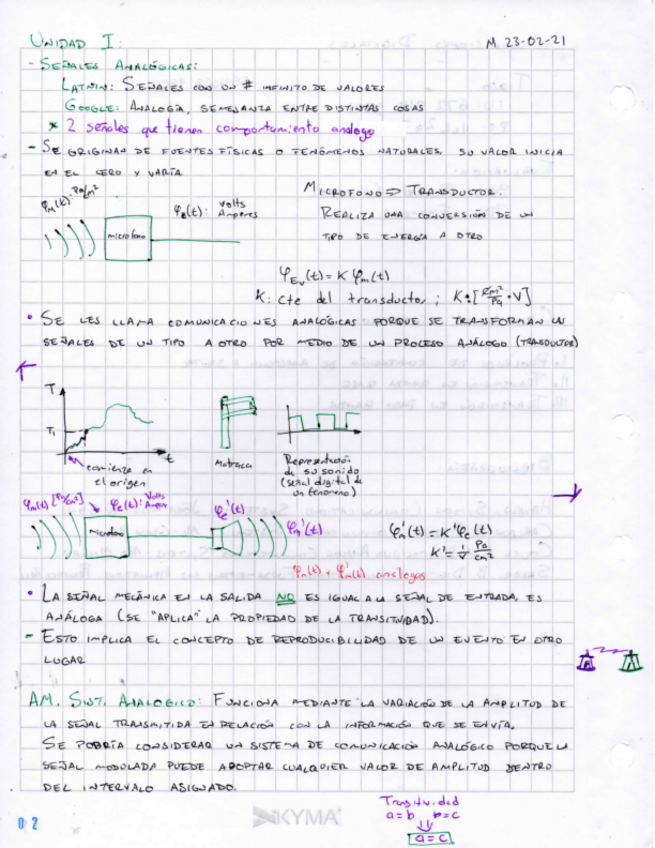 UNIDAD I:
M 23-02-21
- SEÑALES ANALÓGICAS:
LATHIN: SEÑALES CON UN # INFINITO DE VALORES
GOOGLE: ANALOGÍA, SEMEJANZA ENTRE DISTINTAS COSAS
* 2 señales que tienen comportamiento analogo
- SE ORIGINAN DE FUENTES FÍSICAS O FENÓMENOS NATURALES. SU VALOR INICIA
EN EL CERO Y VARÍA
φm(t): Pa/m²
microfono
φe(t): Volts
Amperes
MICROFONO ⇒ TRANSDUCTOR.
REALIZA UNA CONVERSIÓN DE UN
TIPO DE ENERGÍA A OTRO
φEv(t) = K φm(t)
K: cte del transductor ;
• SE LES LLAMA COMUNICACIONES ANALÓGICAS PORQUE SE TRANSFORMAN LAS
SEÑALES DE UN TIPO A OTRO POR MEDIO DE UN PROCESO ANÁLOGO (TRANSDUCTOR)
T
T₁
t
comienza en
el origen
Matraca
Representación
de su sonido
(señal digital de
un fenomeno)
φm(t) [Pa/cm²]
φe(t): Volts
Amper
microfono
φe'(t)
φm'(t)
φm'(t) = K'φe(t)
K' = 1/V Pa/cm²
φm(t) y φm'(t) analogas
• LA SEÑAL MECÁNICA EN LA SALIDA NO ES IGUAL A LA SEÑAL DE ENTRADA, ES
ANÁLOGA (SE "APLICA" LA PROPIEDAD DE LA TRANSITIVIDAD).
- ESTO IMPLICA EL CONCEPTO DE REPRODUCIBILIDAD DE UN EVENTO EN OTRO
LUGAR
AM. SIST. ANALOGICO: FUNCIONA MEDIANTE LA VARIACIÓN DE LA AMPLITUD DE
LA SEÑAL TRANSMITIDA EN RELACIÓN CON LA INFORMACIÓN QUE SE ENVÍA.
SE PODRÍA CONSIDERAR UN SISTEMA DE COMUNICACIÓN ANALÓGICO PORQUE LA
SEÑAL MODULADA PUEDE ADOPTAR CUALQUIER VALOR DE AMPLITUD DENTRO
DEL INTERVALO ASIGNADO.
Transitividad
a=b b=c
a=c
KYMA
02